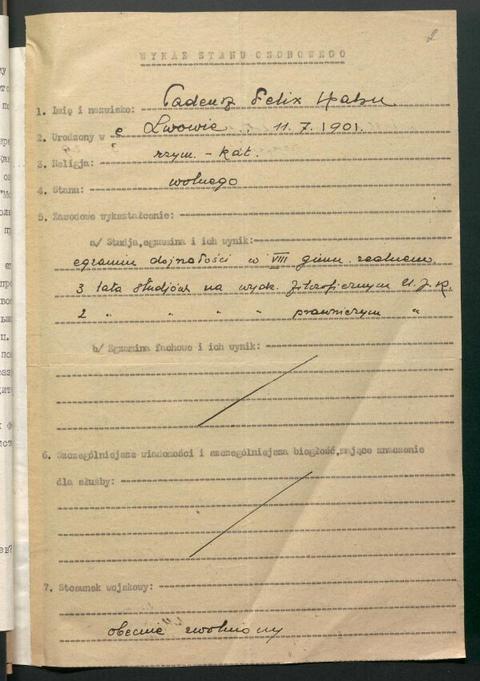 2
WYKAZ STANU OSOBOWEGO
1. Imię i nazwisko: Tadeusz Felix
2. Urodzony w Lwowie .. 11.7.1901.
3. Religja: rzym.-kat.
4. Stanu: wolnego
5. Zawodowe wykształcenie:
a/ Studja, egzamina i ich wynik:
egzamin dojrzałości w VIII gimn. realnem.
3 lata studjów na wydz. filozoficznym U.J.K.
2 " " " " prawniczym "
b/ Egzamina fachowe i ich wynik:
6. Szczególniejsze wiadomości i szczególniejsza biegłość, mające znaczenie
dla służby:
7. Stosunek wojskowy:
obecnie zwolniony